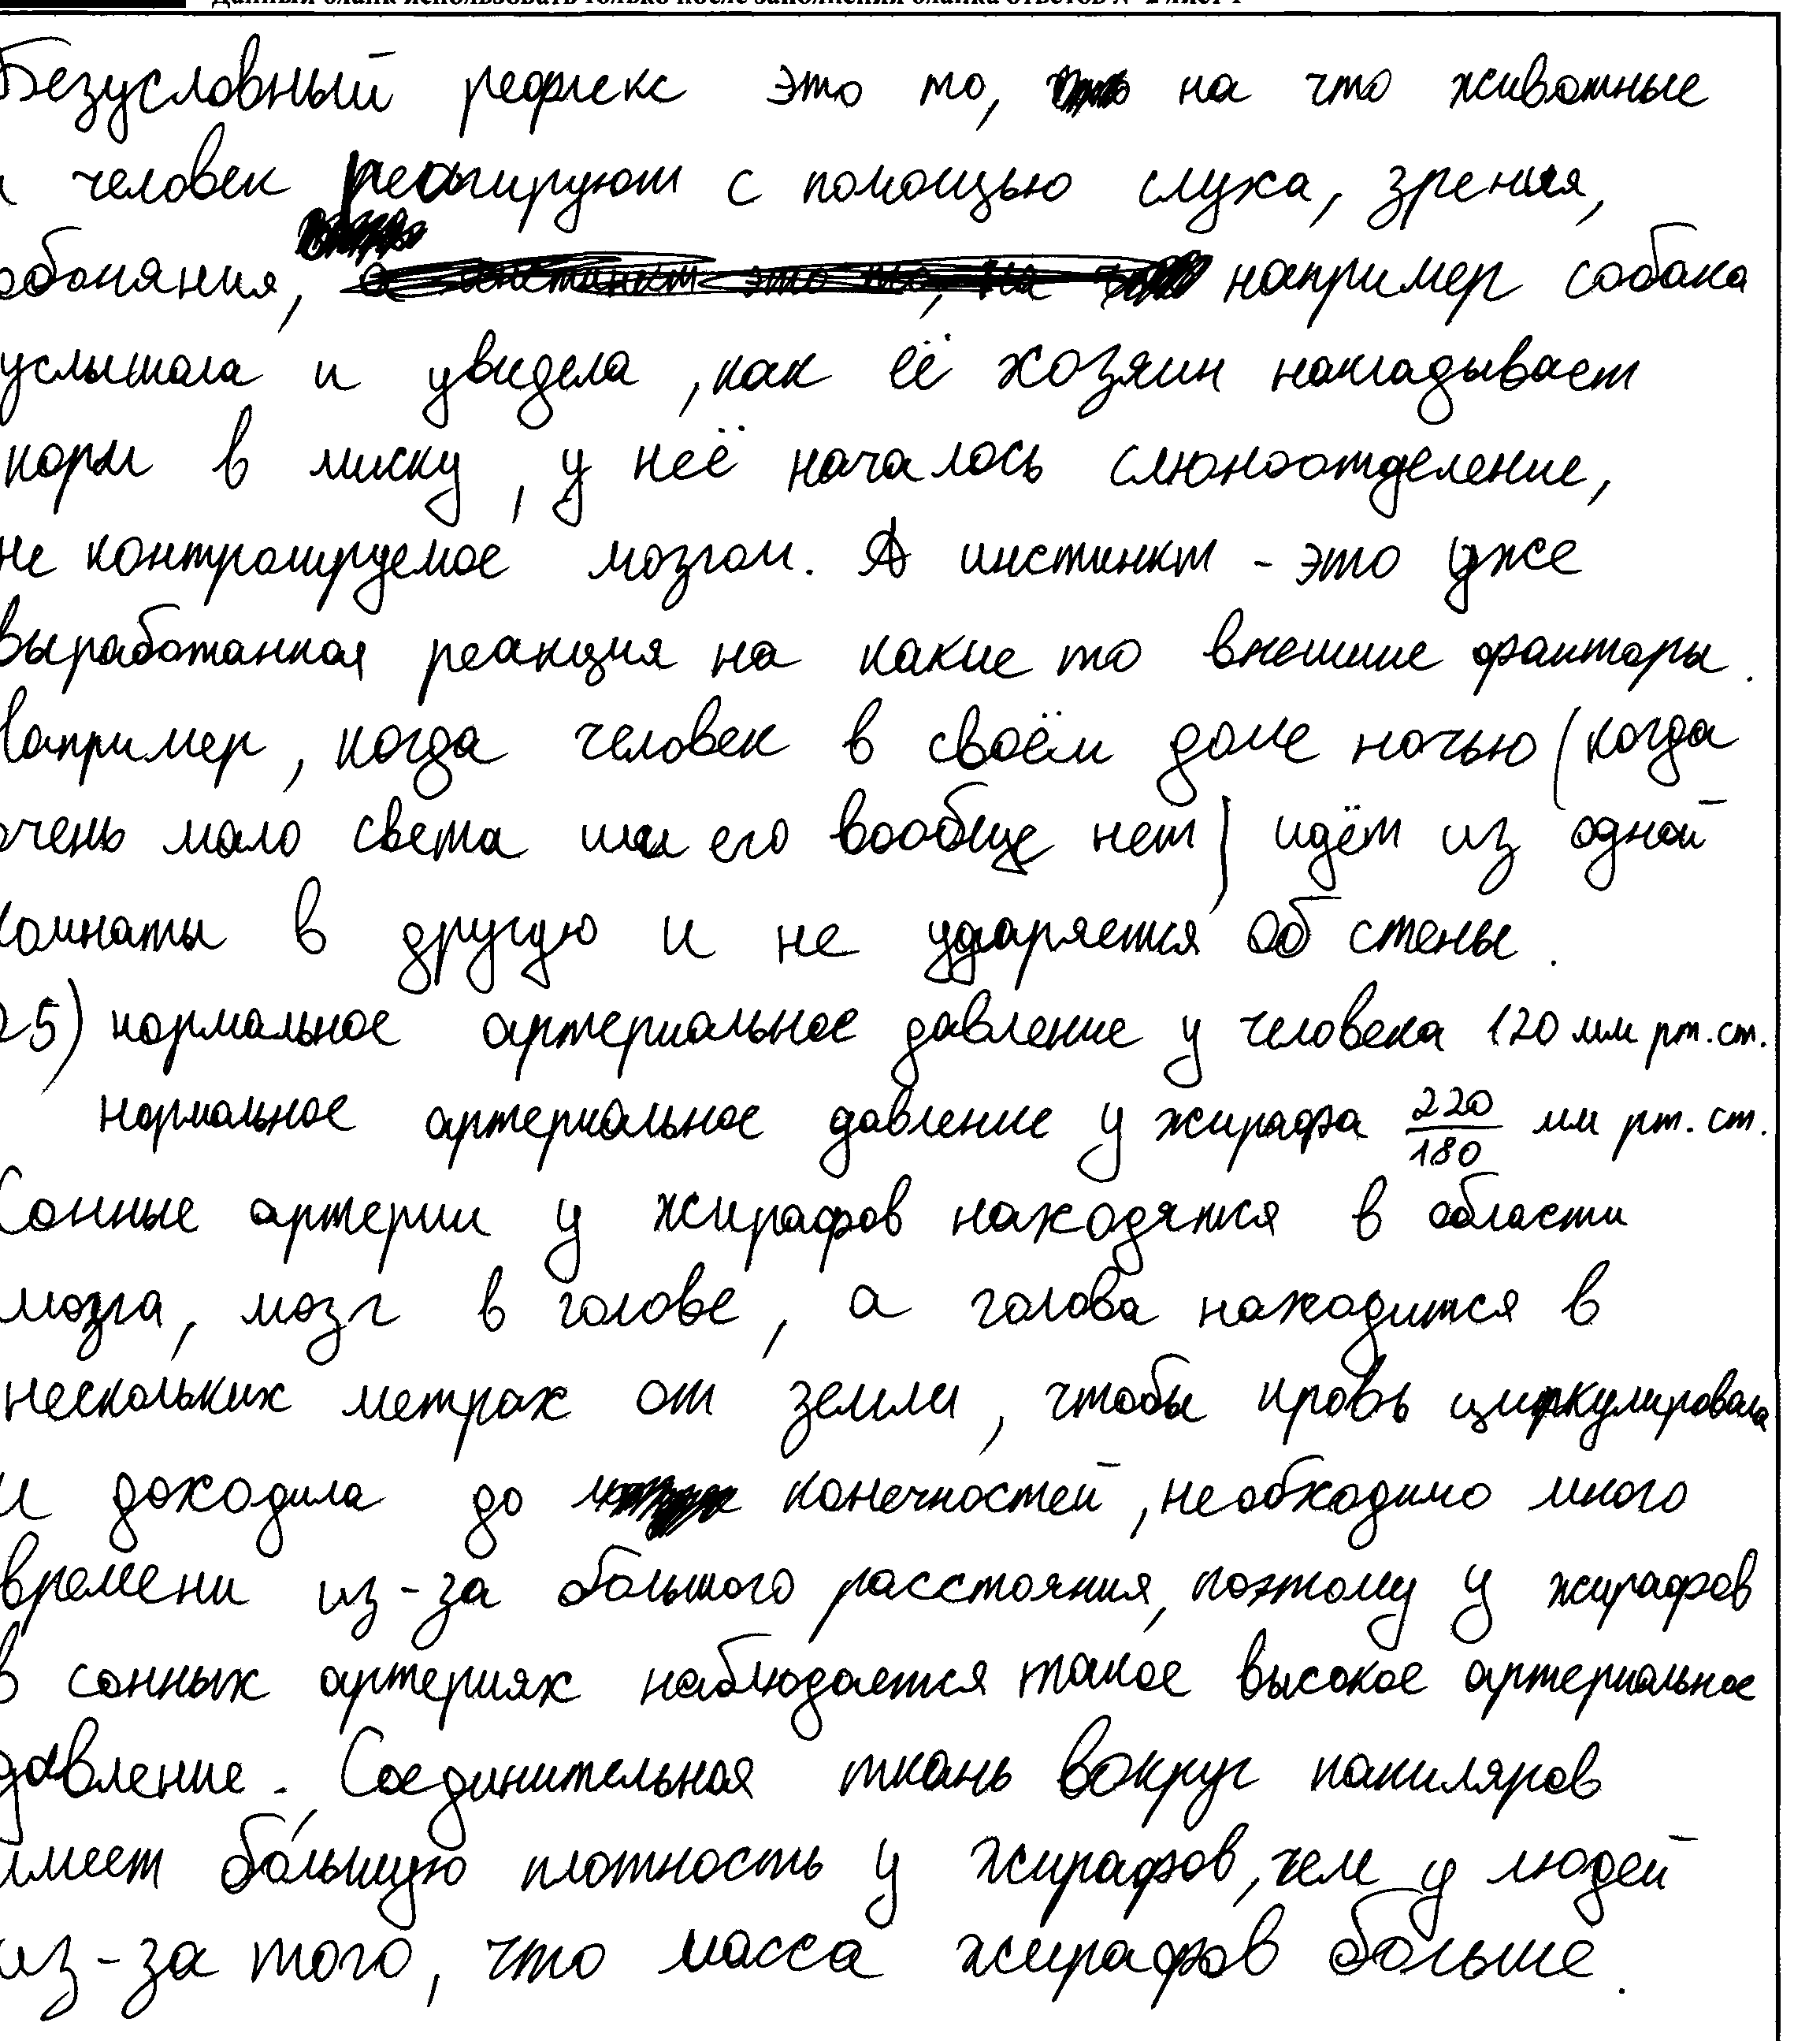 Данный бланк использовать только после заполнения бланка ответов № 2 лист 1
Безусловный рефлекс это то, на что животные
и человек реагируют с помощью слуха, зрения,
обоняния, например собака
услышала и увидела, как её хозяин накладывает
корм в миску, у неё началось слюноотделение,
не контролируемое мозгом. А инстинкт - это уже
выработанная реакция на какие то внешние факторы.
Например, когда человек в своём доме ночью (когда
очень мало света или его вообще нет) идёт из одной
комнаты в другую и не ударяется об стены.
25) нормальное артериальное давление у человека 120 мм рт. ст.
нормальное артериальное давление у жирафа 220/180 мм рт. ст.
Сонные артерии у жирафов находятся в области
мозга, мозг в голове, а голова находится в
нескольких метрах от земли, чтобы кровь циркулировала
и доходила до конечностей, необходимо много
времени из-за большого расстояния, поэтому у жирафов
в сонных артериях наблюдается такое высокое артериальное
давление. Соединительная ткань вокруг капиляров
имеет бо́льшую плотность у жирафов, чем у людей
из-за того, что масса жирафов больше.